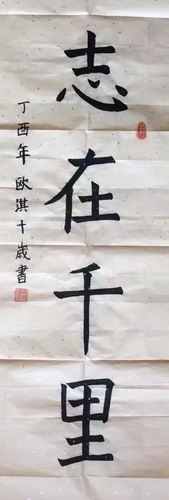 志在千里
丁酉年欧淇十岁書